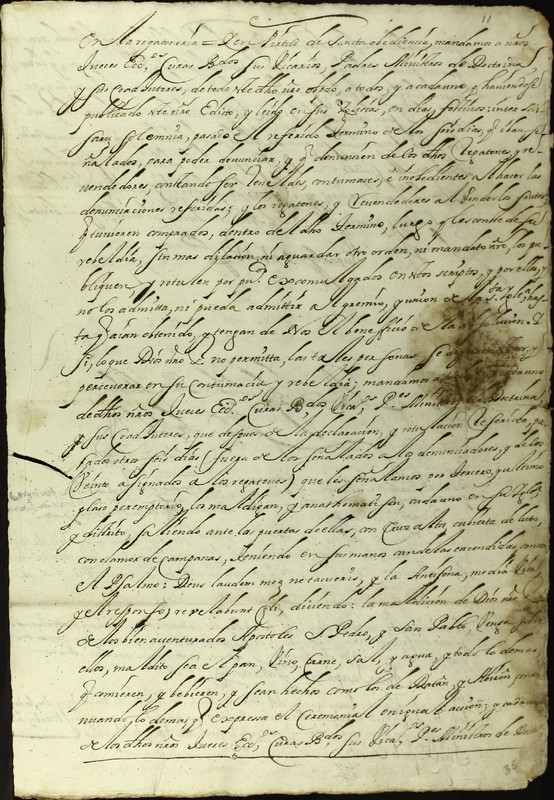 11
en la regatoneria = Y en Virtud de Santa obediencia, mandamos a nros
Jueces Ecc.cos Curas B.dos sus Vicarios, Padres Ministros de Doctrina
y sus Coadjutores, de todo este dho nro obpdo, a todos, y a cada uno, q haviendose
publicado este nro Edicto, y leido en sus Iglesias, en dias festivos; inter
solemnia, pasado el referido termino de los seis dias, q iban se
ñalados, para poder denunciar, y q denuncien de los dhos Regatones, y re
vendedores, constando ser reveldes, contumaces, e inobedientes a hacer las
denunciaciones referidas; y los regatones, y revendedores a vender los
q tuvieren comprados, dentro de el dho termino, luego y les conste de su
rebeldia, sin mas dilacion, ni aguardar otro orden, ni mandato nro, los pu
bliquen y rotulen por pu.cos excomulgados en estos scriptos, y por ellos, y
no los admitta, ni pueda admittir a el gremio, y union de la S.ta Iglesia, has
ta q aian obtenido, y tengan de Nos el beneficio de la absolucion. Y
si, lo que Dios nro S.r no permitta, las tales personas se y
perceverar en su contumacia y rebeldia; mandamos a uno
de dhos nros Jueces Ecc.cos Curas B.dos Vica.s P.es Ministros de Doctrina
y sus Coadjutores, que despues de la declaracion, y rotulacion referida, pa
sados otros seis dias (fuera de los señalados a los denunciadores, y de los
Veinte asignados a los regatones) que les señalamos por tercero, y ultimo
plaso peremptorio, los maldigan, y anathematisen, cada uno en su Iglesia
y distrito, saliendo ante las puertas de ellas, con Cruz alta cubierta de luto,
con clamor de campanas, teniendo en sus manos candelas encendidas,
el Psalmo: Deus laudem meam ne tacueris, y la Antifona, media Vita
y el responso, revelabunt celi, diciendo: la maldicion de Dios nro S.r
de los bien aventurados Apostoles S. Pedro, y San Pablo, Venga sobre
ellos, maldito sea el pan, Vino, carne, sal, y agua, y todo lo demas
q comieren, y bebieren, y sean hechos como los de Datan, y Abiron,
nuando, lo demas q expresa el Ceremonial en que y cada uno
de los dhos nros Jueces Ecc.cos Curas B.dos sus Vica.s P.es Ministros de
35